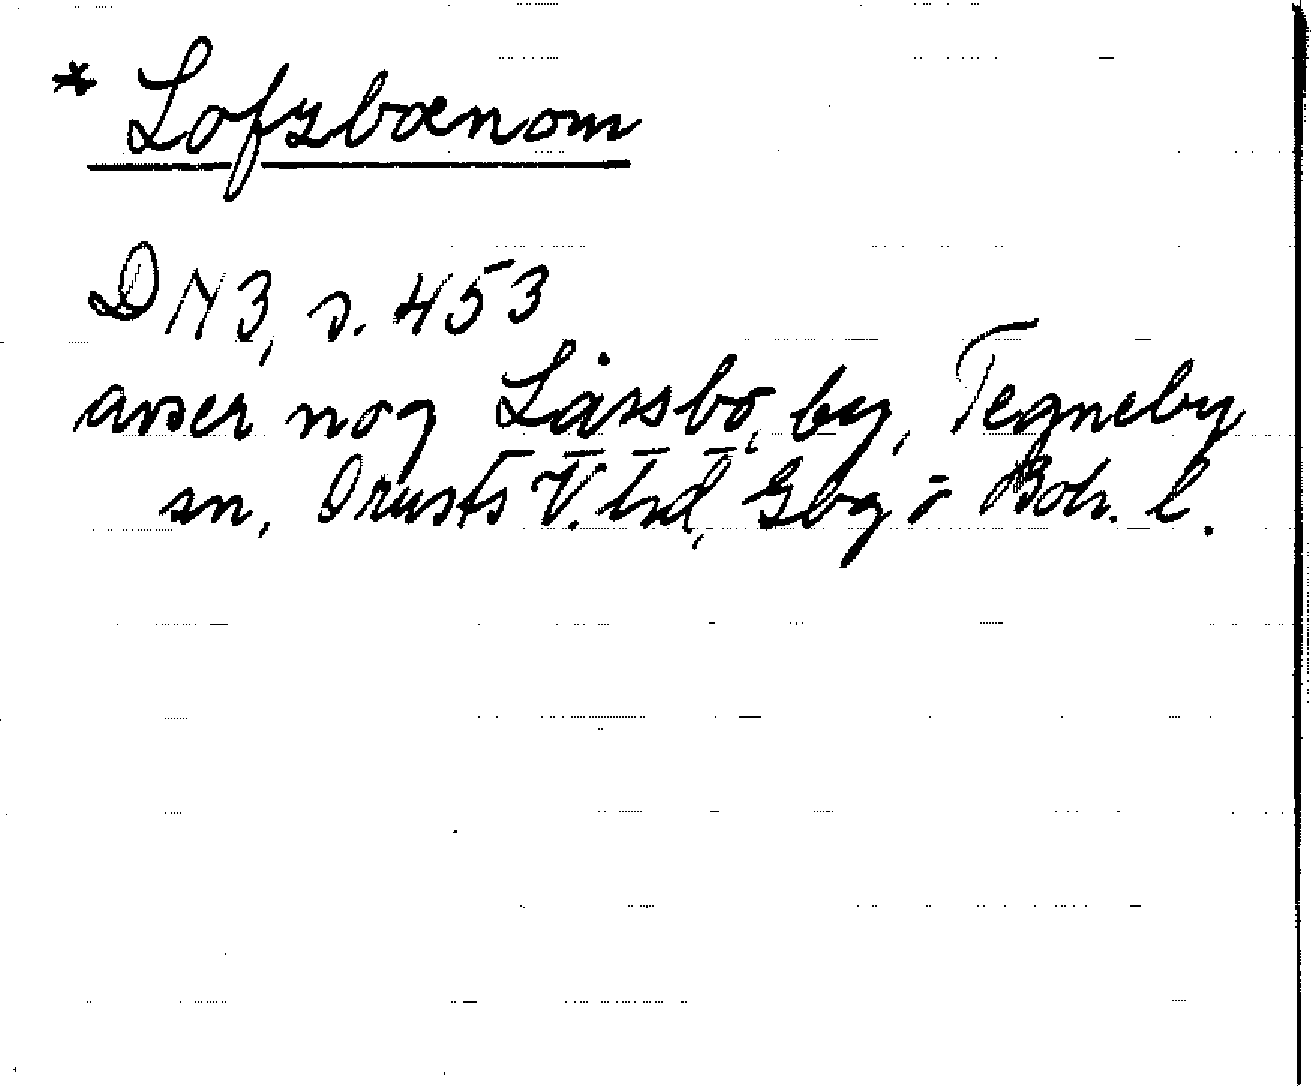 * Lofzbœnom
DN 3, s. 453
avser nog Låssbo, by, Tegneby
sn, Orusts V. hd, Gbg o Boh. l.